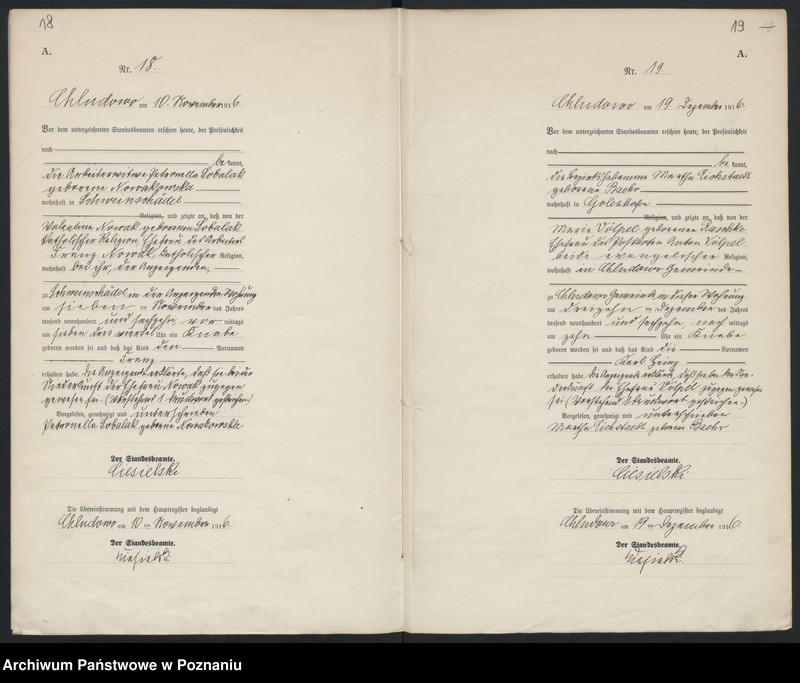 18
A.
Nr. 18.
Chludowo am 10. November 1916.
Vor dem unterzeichneten Standesbeamten erschien heute, der Persönlichkeit
nach
be kannt,
die Arbeiterwitwe Petronella Sobalak
geborene Nowakowska
wohnhaft in Schweinschädel
Religion, und zeigte an, daß von der
Valentine Nowak geborenen Sobalak
katholischer Religion, Ehefrau des Arbeiters
Franz Nowak, katholischer Religion,
wohnhaft bei ihr, der Anzeigenden,
zu Schweinschädel in der Anzeigenden Wohnung
am sieben ten November des Jahres
tausend neunhundert und sechzehn, vor mittags
um sieben drei viertel Uhr ein Knabe
geboren worden sei und daß das Kind den Vornamen
Franz
erhalten habe. Die Anzeigende erklärte, daß sie bei der
Niederkunft der Ehefrau Nowak zugegen
gewesen sei. (Vorstehend 1 Druckwort gestrichen)
Vorgelesen, genehmigt und unterschrieben
Petronella Sobalak geborene Nowakowska
Der Standesbeamte.
Ciesielski
Die Übereinstimmung mit dem Hauptregister beglaubigt
Chludowo am 10 ten November 1916.
Der Standesbeamte.
Ciesielski
19
A.
Nr. 19
Chludowo am 19. Dezember 1916.
Vor dem unterzeichneten Standesbeamten erschien heute, der Persönlichkeit
nach
be kannt,
die Bezirkshebamme Martha
geborene Baehr
wohnhaft in
Religion, und zeigte an, daß von der
Marie Völpel geborenen Raschke
Ehefrau des Postboten Anton Völpel
beide evangelischer Religion,
wohnhaft in Chludowo Gemeinde
zu Chludowo Gemeinde in dieser Wohnung
am dreizehn ten Dezember des Jahres
tausend neunhundert und sechzehn, nach mittags
um zehn Uhr ein Knabe
geboren worden sei und daß das Kind die Vornamen
Karl Heinz
erhalten habe. Die Anzeigende erklärte, daß sie bei der Nie-
derkunft der Ehefrau Völpel zugegen gewesen
sei. (Vorstehend 1 Druckwort gestrichen.)
Vorgelesen, genehmigt und unterschrieben
Martha geborene Baehr
Der Standesbeamte.
Ciesielski
Die Übereinstimmung mit dem Hauptregister beglaubigt
Chludowo am 19 ten Dezember 1916
Der Standesbeamte.
Ciesielski
Archiwum Państwowe w Poznaniu